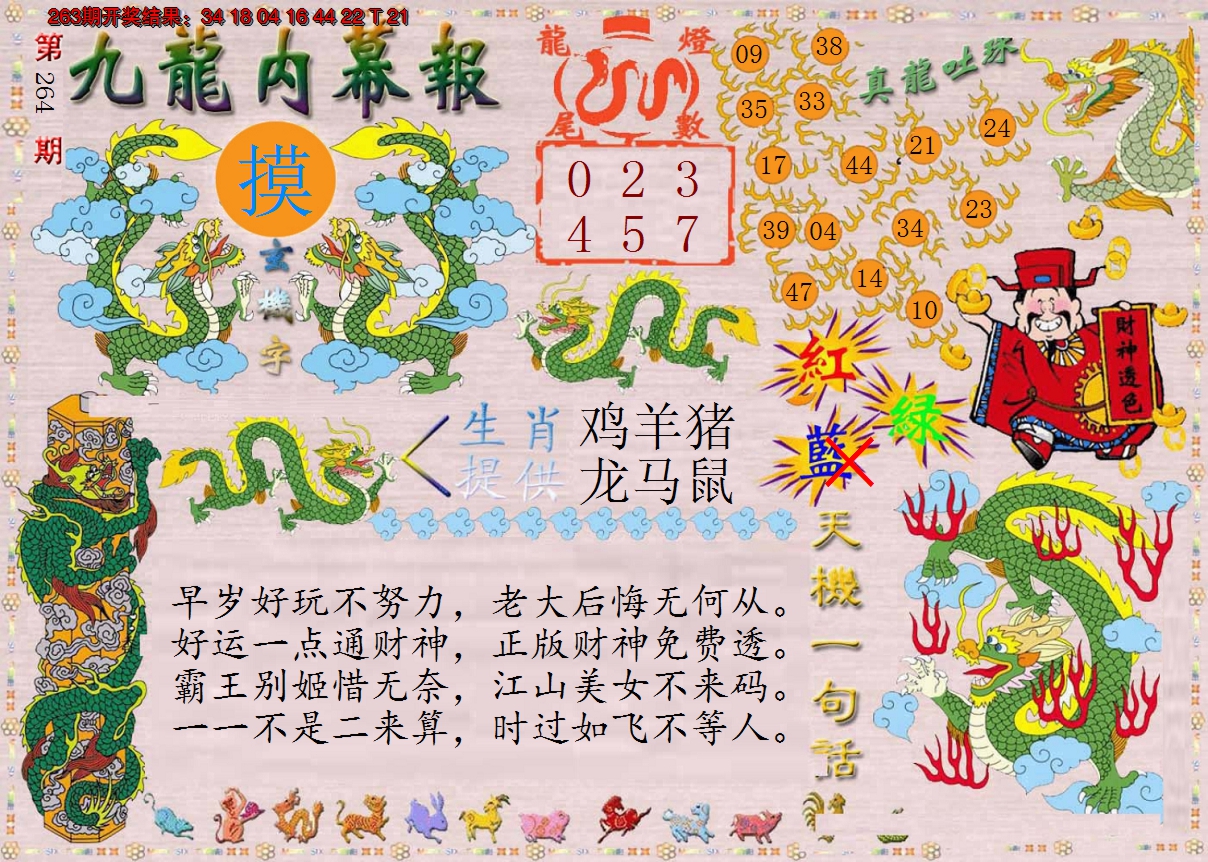 263期开奖结果：34 18 04 16 44 22 T 21
第264期
九龍内幕報
摸
玄機字
龍燈
尾數
0 2 3
4 5 7
真龍吐珠
09 38
35 33
17 44 21 24
39 04 34 23
47 14 10
財神透色
紅
綠
藍
生肖 鸡羊猪
提供 龙马鼠
天機一句话
早岁好玩不努力，老大后悔无何从。
好运一点通财神，正版财神免费透。
霸王别姬惜无奈，江山美女不来码。
一一不是二来算，时过如飞不等人。